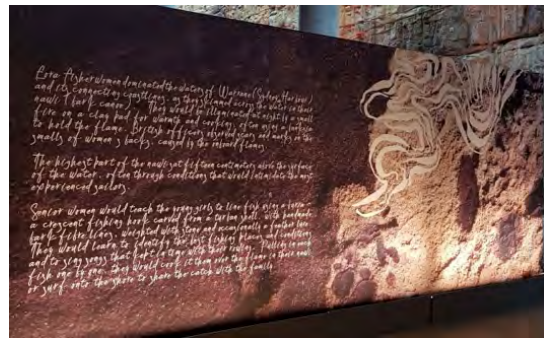 Eora fisherwomen dominated the waters of Warrane (Sydney Harbour)
and its connecting coastline, as they skimmed across the water in their
nawi (bark canoe). They would be illuminated at night by a small
fire on a clay pad for warmth and cooking, often using a
to hold the flame. British officers observed scars and marks on the
smalls of women's backs, caused by the onboard flames.
The highest part of the nawi sat fifteen centimeters above the surface
of the water, often through conditions that would intimidate the most
experienced sailors.
Senior women would teach the young girls to line fish using a
a crescent fishing hook carved from a turban shell, with handmade
bark fishing lines, weighted with stone and occasionally a feather lure.
They would learn to identify the best fishing places and conditions
and to sing songs that kept in time with their rowing. Pulling in each
fish one by one, they would cook it then over the flame in their nawi
or surf onto the shore to share the catch with the family.